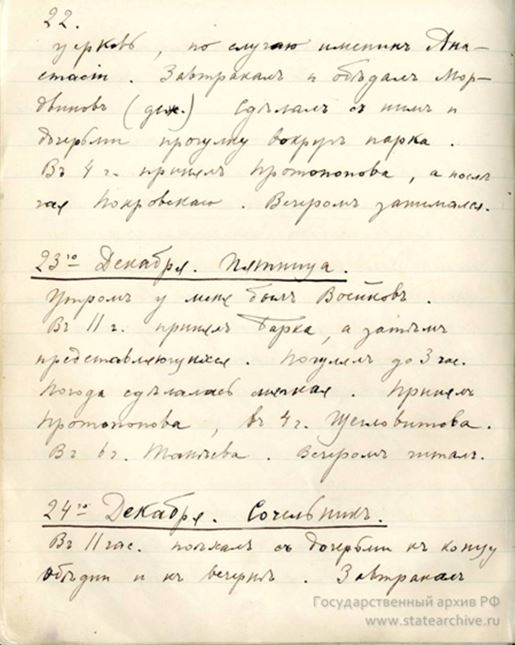 22.
церковь, по случаю именин Ана-
стасіи. Завтракалъ и обѣдалъ Мор-
двиновъ (деж.) Сдѣлалъ съ нимъ и
дочерьми прогулку вокругъ парка.
Въ 4 ч. принялъ Протопопова, а послѣ
чая Покровскаго. Вечеромъ занимался.
23го Декабря. Пятница.
Утромъ у меня былъ Воейковъ.
Въ 11 ч. принялъ Барка, а затѣмъ
представляющихся. Погулялъ до 3 час.
Погода сдѣлалась мягкая. Принялъ
Протопопова, въ 4 ч. Щегловитова.
Въ 6 ч. Танѣева. Вечеромъ читалъ.
24го Декабря. Сочельникъ.
Въ 11 час. поѣхалъ съ дочерьми къ концу
обѣдни и къ вечернѣ. Завтракалъ
Государственный архив РФ
www.statearchive.ru